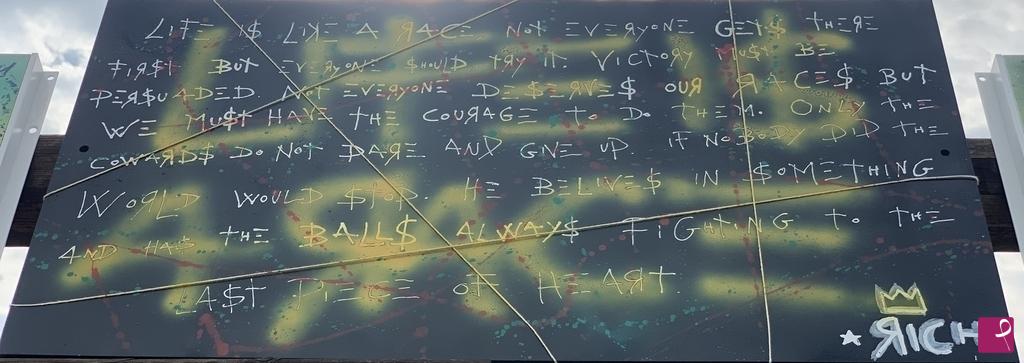 LIFE IS LIKE A RACE NOT EVERYONE GET$ THERE
FIR$T BUT EVERYONE $HOULD TRY IT. VICTORY MU$T BE
PER$UADED. NOT EVERYONE DE$ERVE$ OUR RACE$ BUT
WE MU$T HAVE THE COURAGE TO DO THEM. ONLY THE
COWARD$ DO NOT DARE AND GIVE UP. IF NOBODY DID THE
WORLD WOULD $TOP. HE BELIVE$ IN $OMETHING
AND HA$ THE BALL$ ALWAY$ FIGHTING TO THE
LA$T PIECE OF HEART
RICH